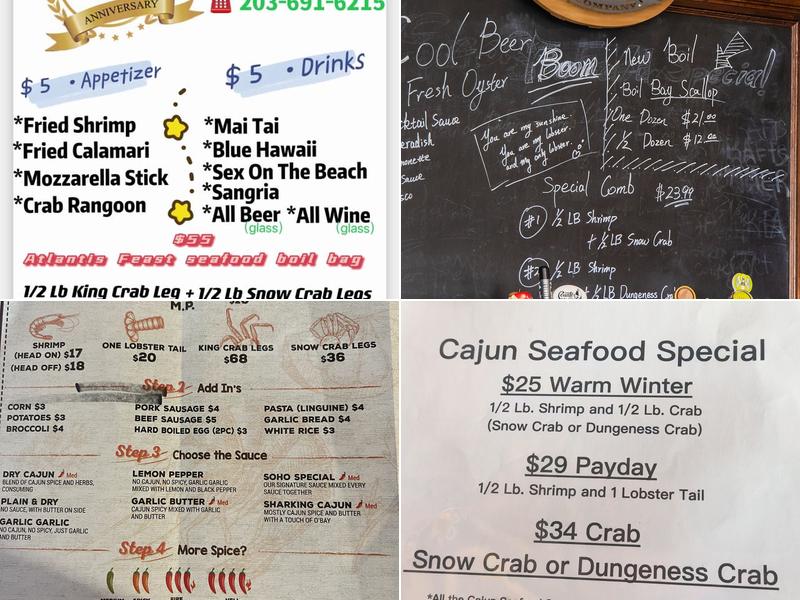 ANNIVERSARY
203-691-6215
$5 • Appetizer
$5 • Drinks
*Fried Shrimp
*Fried Calamari
*Mozzarella Stick
*Crab Rangoon
*Mai Tai
*Blue Hawaii
*Sex On The Beach
*Sangria
*All Beer *All Wine
(glass) (glass)
$55
Atlantis Feast seafood boil bag
1/2 Lb King Crab Leg + 1/2 Lb Snow Crab Legs
COMPANY
Cool Beer
Fresh Oyster
Boom
cktail Sauce
eradish
Sauce
sco
You are my sunshine.
You are my lobser.
and my only lobser.
New Boil
Boil Bay Scallop
One Dozen $21.00
1/2 Dozen $12.00
Special Comb $23.99
#1 1/2 LB Shrimp
+ 1/2 LB Snow Crab
1/2 LB Shrimp
+ 1/2 LB Dungeness
M.P.
SHRIMP
(HEAD ON) $17
(HEAD OFF) $18
ONE LOBSTER TAIL
$20
KING CRAB LEGS
$68
SNOW CRAB LEGS
$36
Step 2 Add In's
CORN $3
POTATOES $3
BROCCOLI $4
PORK SAUSAGE $4
BEEF SAUSAGE $5
HARD BOILED EGG (2PC) $3
PASTA (LINGUINE) $4
GARLIC BREAD $4
WHITE RICE $3
Step 3 Choose the Sauce
DRY CAJUN Med
BLEND OF CAJUN SPICE AND HERBS,
CONSUMING
PLAIN & DRY
NO SAUCE, WITH BUTTER ON SIDE
GARLIC GARLIC
NO CAJUN, NO SPICY, JUST GARLIC
AND BUTTER
LEMON PEPPER
NO CAJUN, NO SPICY, GARLIC GARLIC
MIXED WITH LEMON AND BLACK PEPPER
GARLIC BUTTER Med
CAJUN SPICY MIXED WITH GARLIC
AND BUTTER
SOHO SPECIAL Med
OUR SIGNATURE SAUCE MIXED EVERY
SAUCE TOGETHER
SHARKING CAJUN Med
MOSTLY CAJUN SPICE AND BUTTER
WITH A TOUCH OF O'BAY
Step 4 More Spice?
Cajun Seafood Special
$25 Warm Winter
1/2 Lb. Shrimp and 1/2 Lb. Crab
(Snow Crab or Dungeness Crab)
$29 Payday
1/2 Lb. Shrimp and 1 Lobster Tail
$34 Crab
Snow Crab or Dungeness Crab